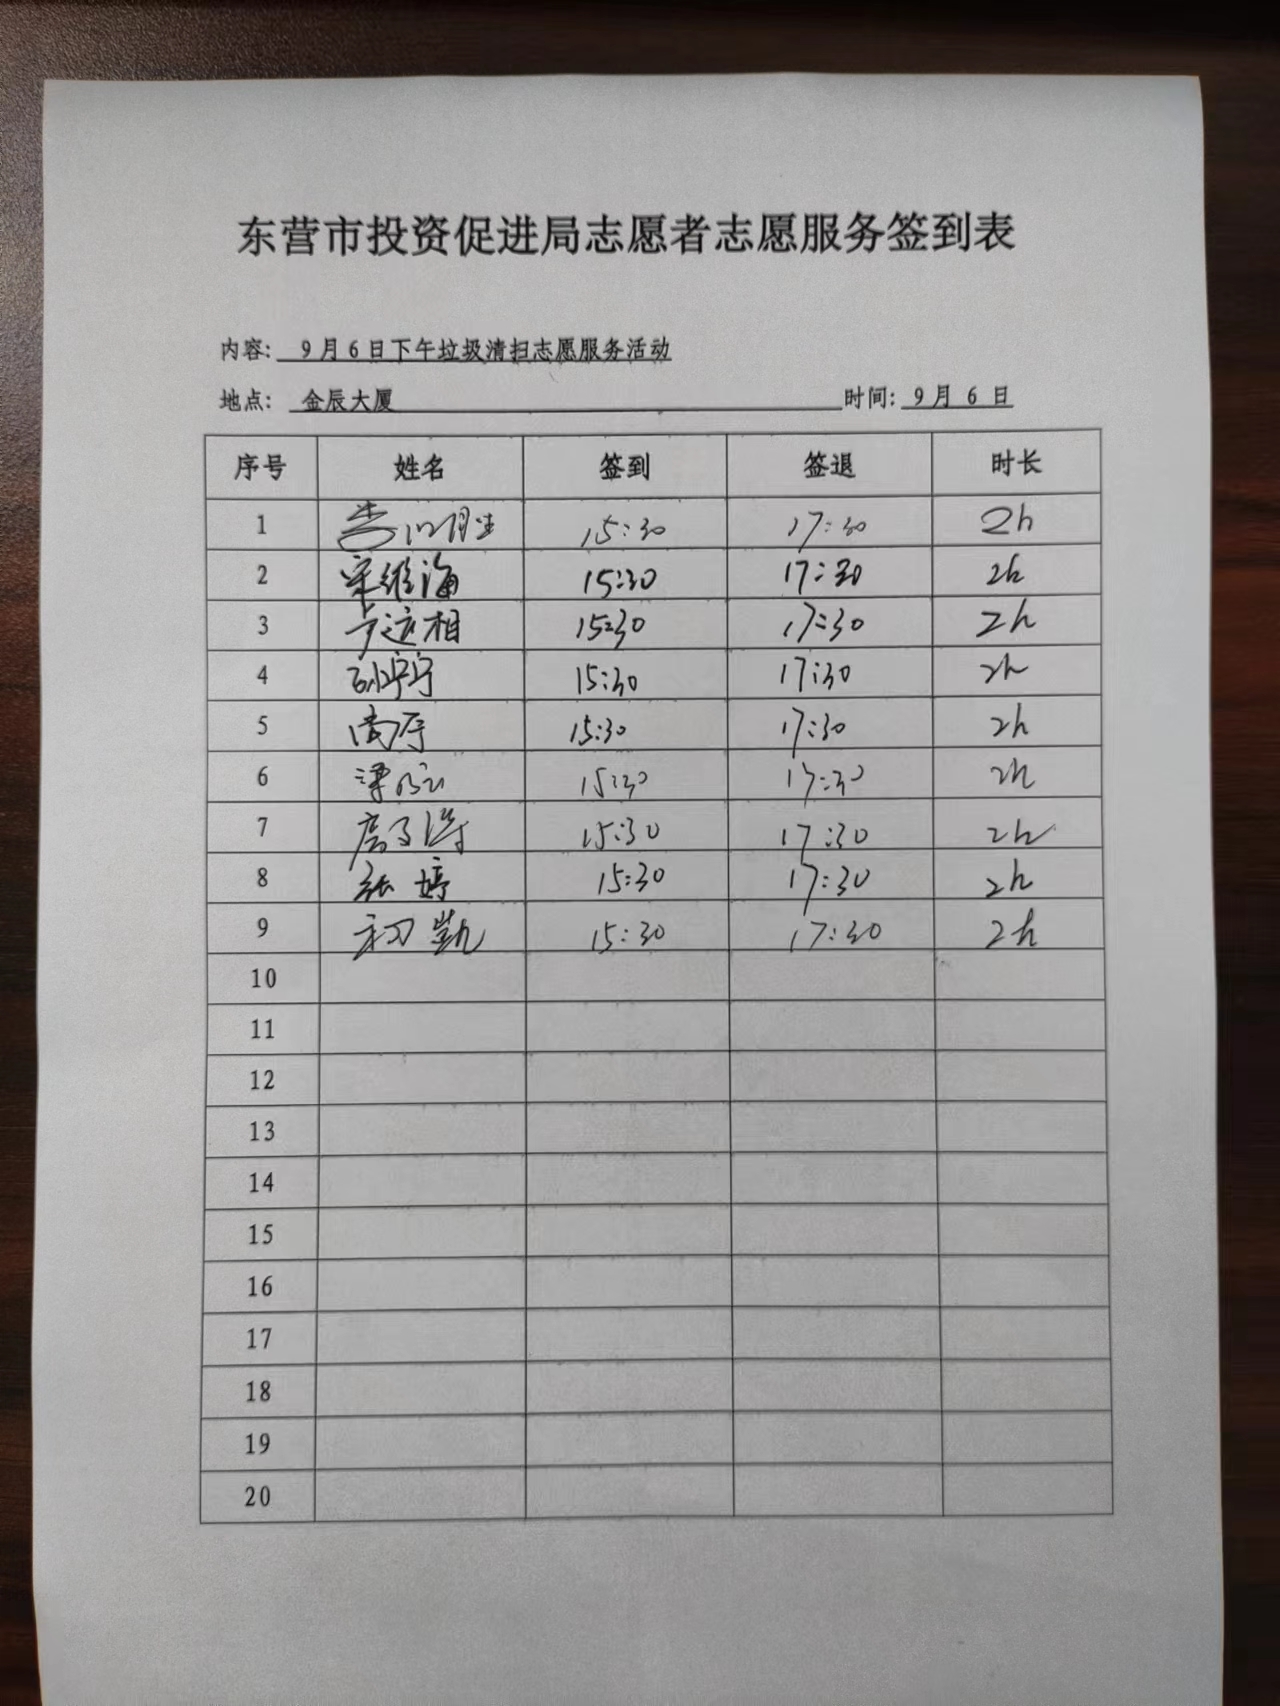 东营市投资促进局志愿者志愿服务签到表
内容: 9月6日下午垃圾清扫志愿服务活动
地点: 金辰大厦 时间: 9月 6 日
序号 姓名 签到 签退 时长
1 15:30 17:30 2h
2 宋维海 15:30 17:30 2h
3 卢运相 15:30 17:30 2h
4 孙宁宁 15:30 17:30 2h
5 15:30 17:30 2h
6 15:30 17:30 2h
7 15:30 17:30 2h
8 张婷 15:30 17:30 2h
9 初凯 15:30 17:30 2h
10
11
12
13
14
15
16
17
18
19
20